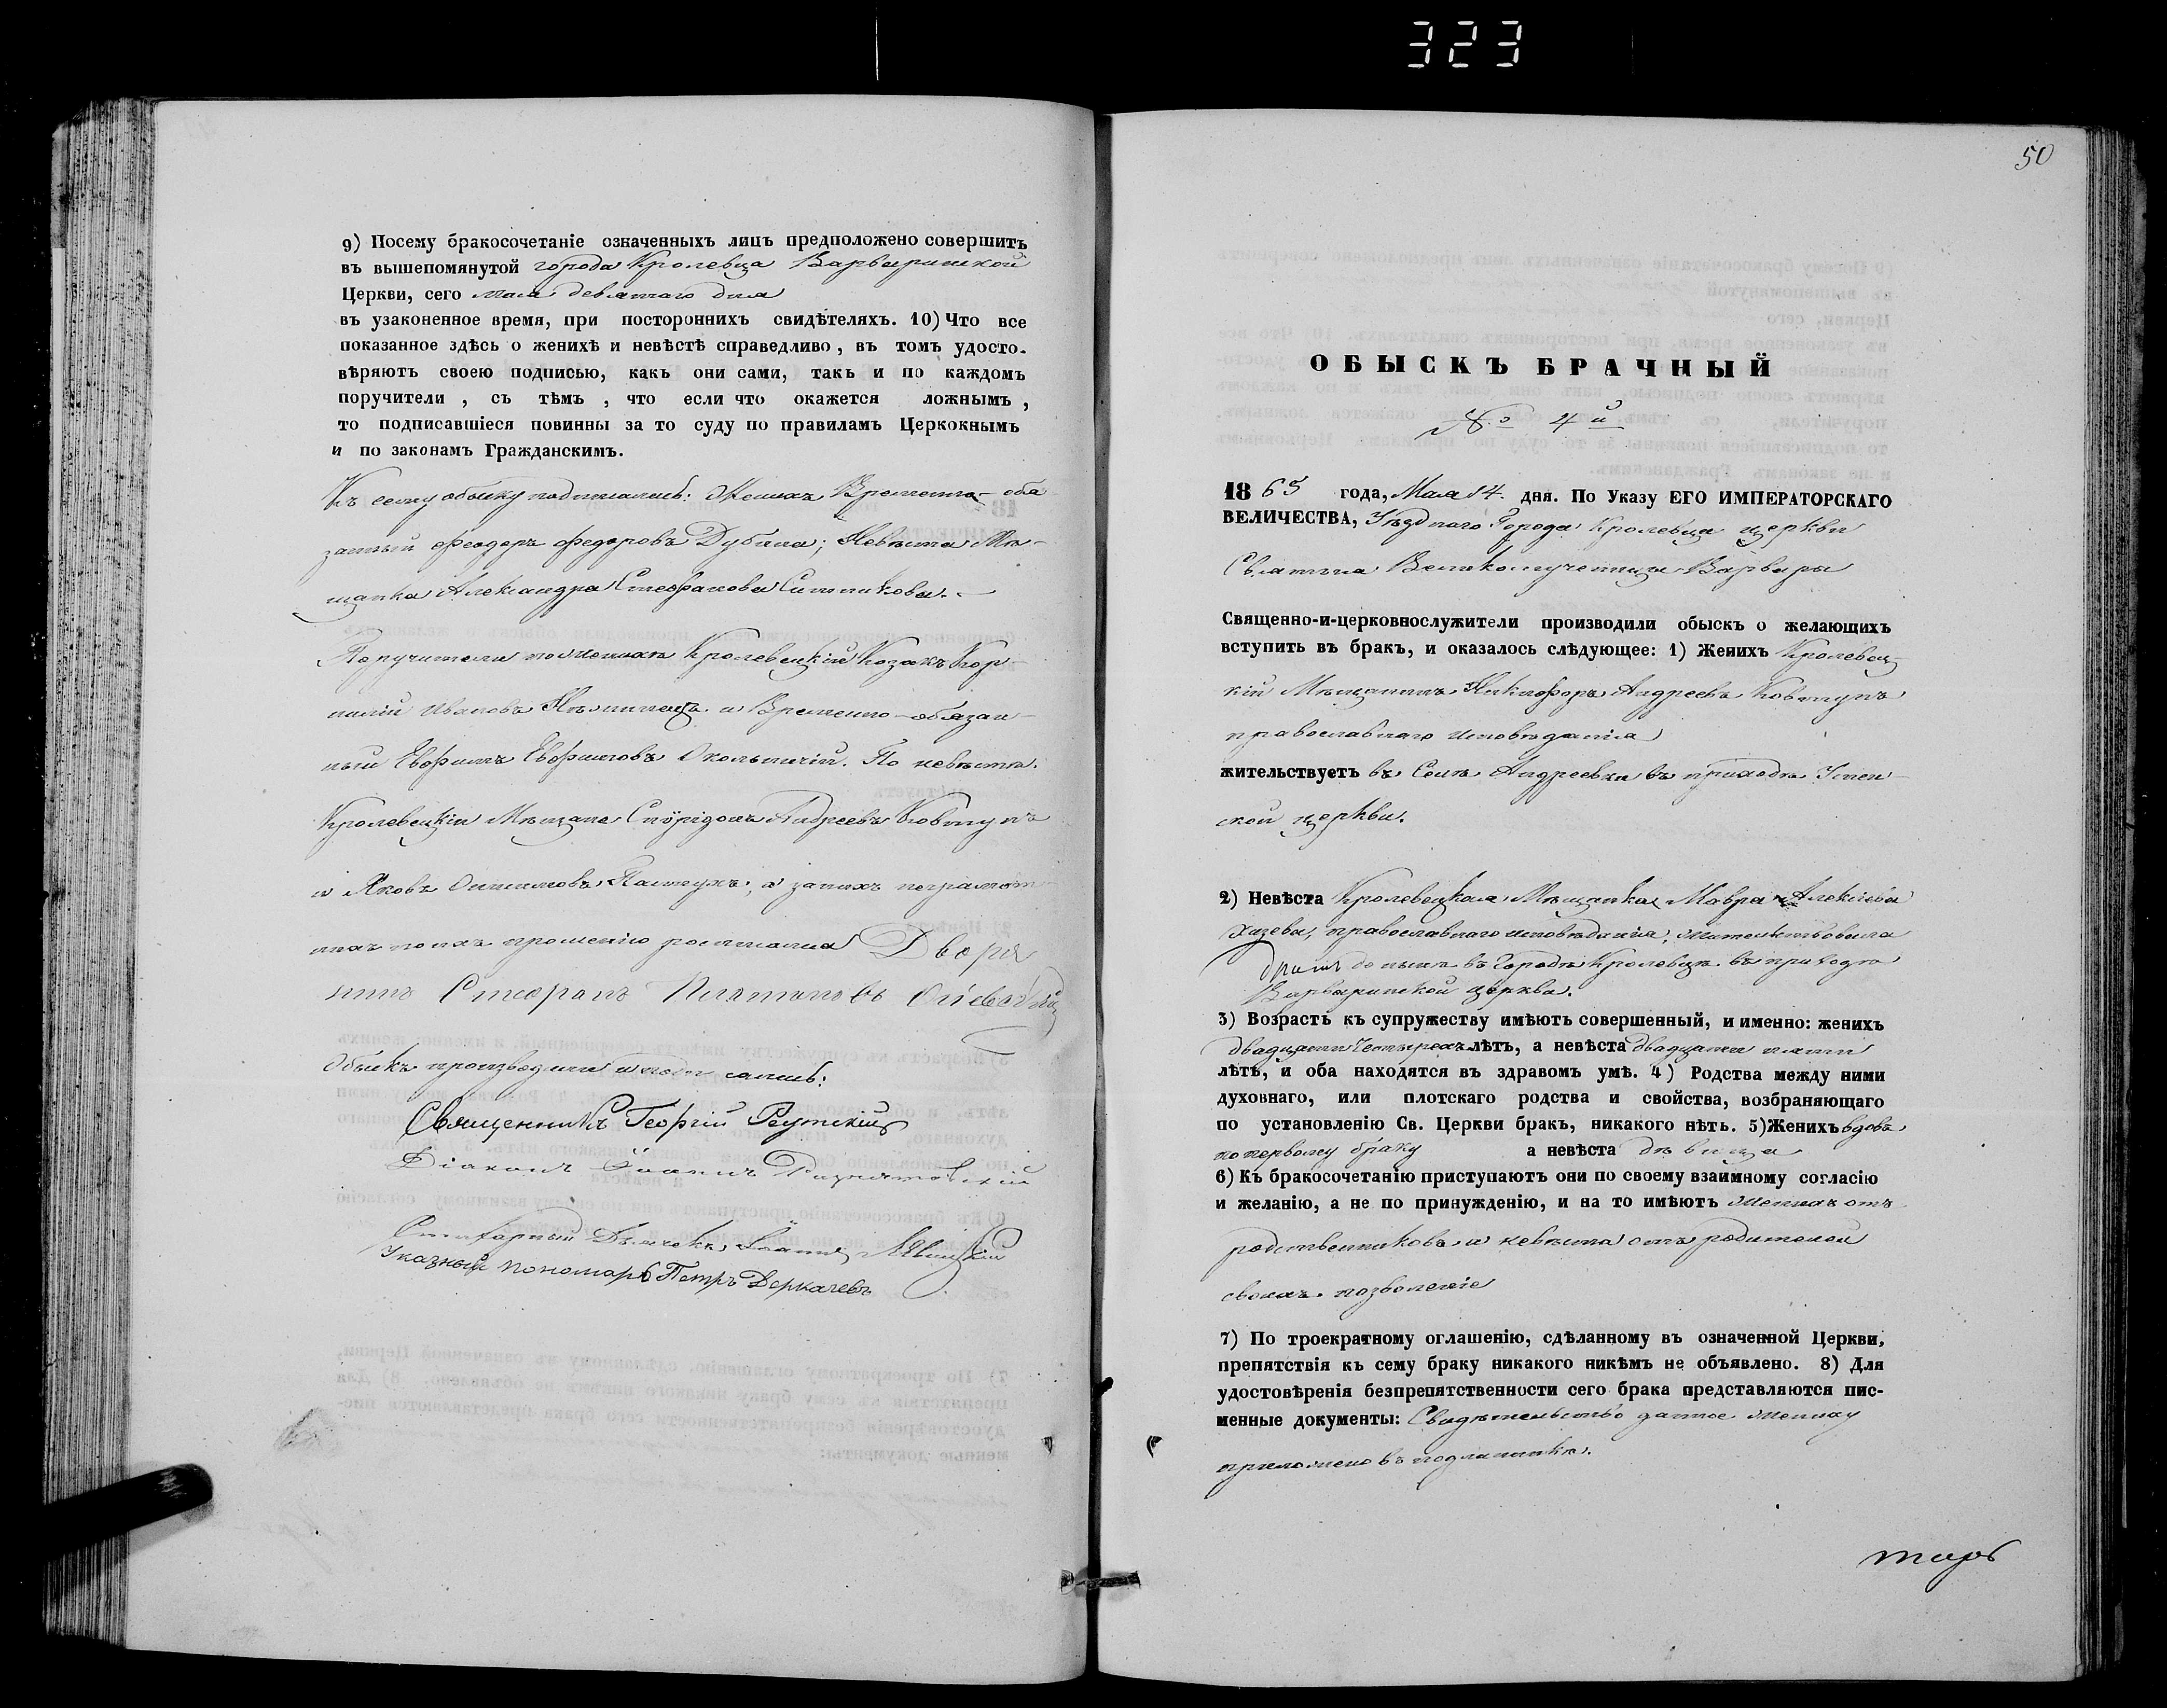 323
9) Посему бракосочетаніе означенныхъ лицъ предположено совершить
въ вышепомянутой города Кролевца Варваринской
Церкви, сего мая девятаго дня
въ узаконенное время, при постороннихъ свидѣтеляхъ. 10) Что все
показанное здѣсь о женихѣ и невѣстѣ справедливо, въ томъ удосто-
вѣряютъ своею подписью, какъ они сами, такъ и по каждомъ
поручители, съ тѣмъ, что если что окажется ложнымъ,
то подписавшіеся повинны за то суду по правиламъ Церкокнымъ
и по законамъ Гражданскимъ.
Къ сему обыску подписались: Женихъ Временно-обя
занный Феодоръ Федоровъ Дубина; Невѣста Мѣ-
щанка Александра Стефанова Ситникова.
Поручители по женихѣ Кролевецкій Козакъ Кор-
нилій Ивановъ и Временно-обязан-
ный Евфимъ Евфимовъ Окольничій. По невѣстѣ.
Кролевецкіи Мѣщане Спѵридонъ Андреевъ Ковтунъ
и Яковъ Пастухъ, а за нихъ неграмот-
ныхъ по ихъ прошенію росписался Дворя
нинъ Стефанъ Платоновъ
Обыскъ производили и подписались:
Священникъ Георгій Реутскій
Діаконъ Іоаннъ
Дьячекъ Іоаннъ
Указный пономарь Петръ Деркачевъ
50
ОБЫСКЪ БРАЧНЫЙ
№ 4й
1865 года, Мая 14 дня. По Указу ЕГО ИМПЕРАТОРСКАГО
ВЕЛИЧЕСТВА, Уѣзднаго Города Кролевца церкви
Святыя Великомученицы Варвары
Священно-и-церковнослужители производили обыскъ о желающихъ
вступить въ бракъ, и оказалось слѣдующее: 1) Женихъ Кролевец-
кій Мѣщанинъ Никифоръ Андреевъ Ковтунъ
православнаго исповѣданія
жительствуетъ въ Селѣ Андреевки въ приходѣ Успен-
ской церкви.
2) Невѣста Кролевецкая Мѣщанка Мавра Алексіева
Хазева, православнаго исповѣданія, жительствовала
до нынѣ въ Городѣ Кролевцѣ въ приходѣ
Варваринской церкви.
3) Возрастъ къ супружеству имѣютъ совершенный, и именно: женихъ
двадцати четырехъ лѣтъ, а невѣста двадцати пяти
лѣтъ, и оба находятся въ здравомъ умѣ. 4) Родства между ними
духовнаго, или плотскаго родства и свойства, возбраняющаго
по установленію Св. Церкви бракъ, никакого нѣтъ. 5) Женихъ вдовъ
по первому браку а невѣста дѣвица
6) Къ бракосочетанію приступаютъ они по своему взаимному согласію
и желанію, а не по принужденію, и на то имѣютъ женихъ отъ
родственниковъ и невѣста отъ родителей
своихъ позволеніе
7) По троекратному оглашенію, сдѣланному въ означенной Церкви,
препятствія къ сему браку никакого никѣмъ не объявлено. 8) Для
удостовѣренія безпрепятственности сего брака представляются пис-
менные документы: Свидѣтельство данное жениху
приложено въ подлинникѣ.